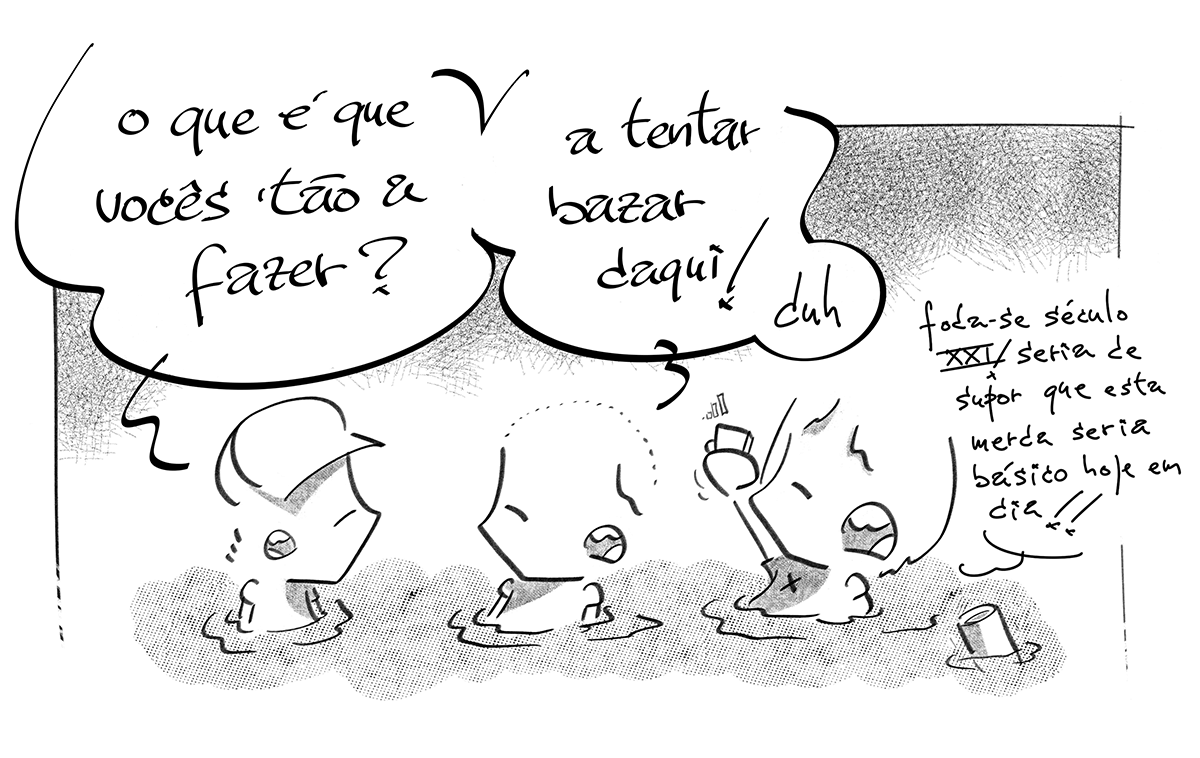 o que é que
vocês 'tão a
fazer?
a tentar
bazar
daqui!
duh
foda-se século
XXI! seria de
supor que esta
merda seria
básico hoje em
dia!!